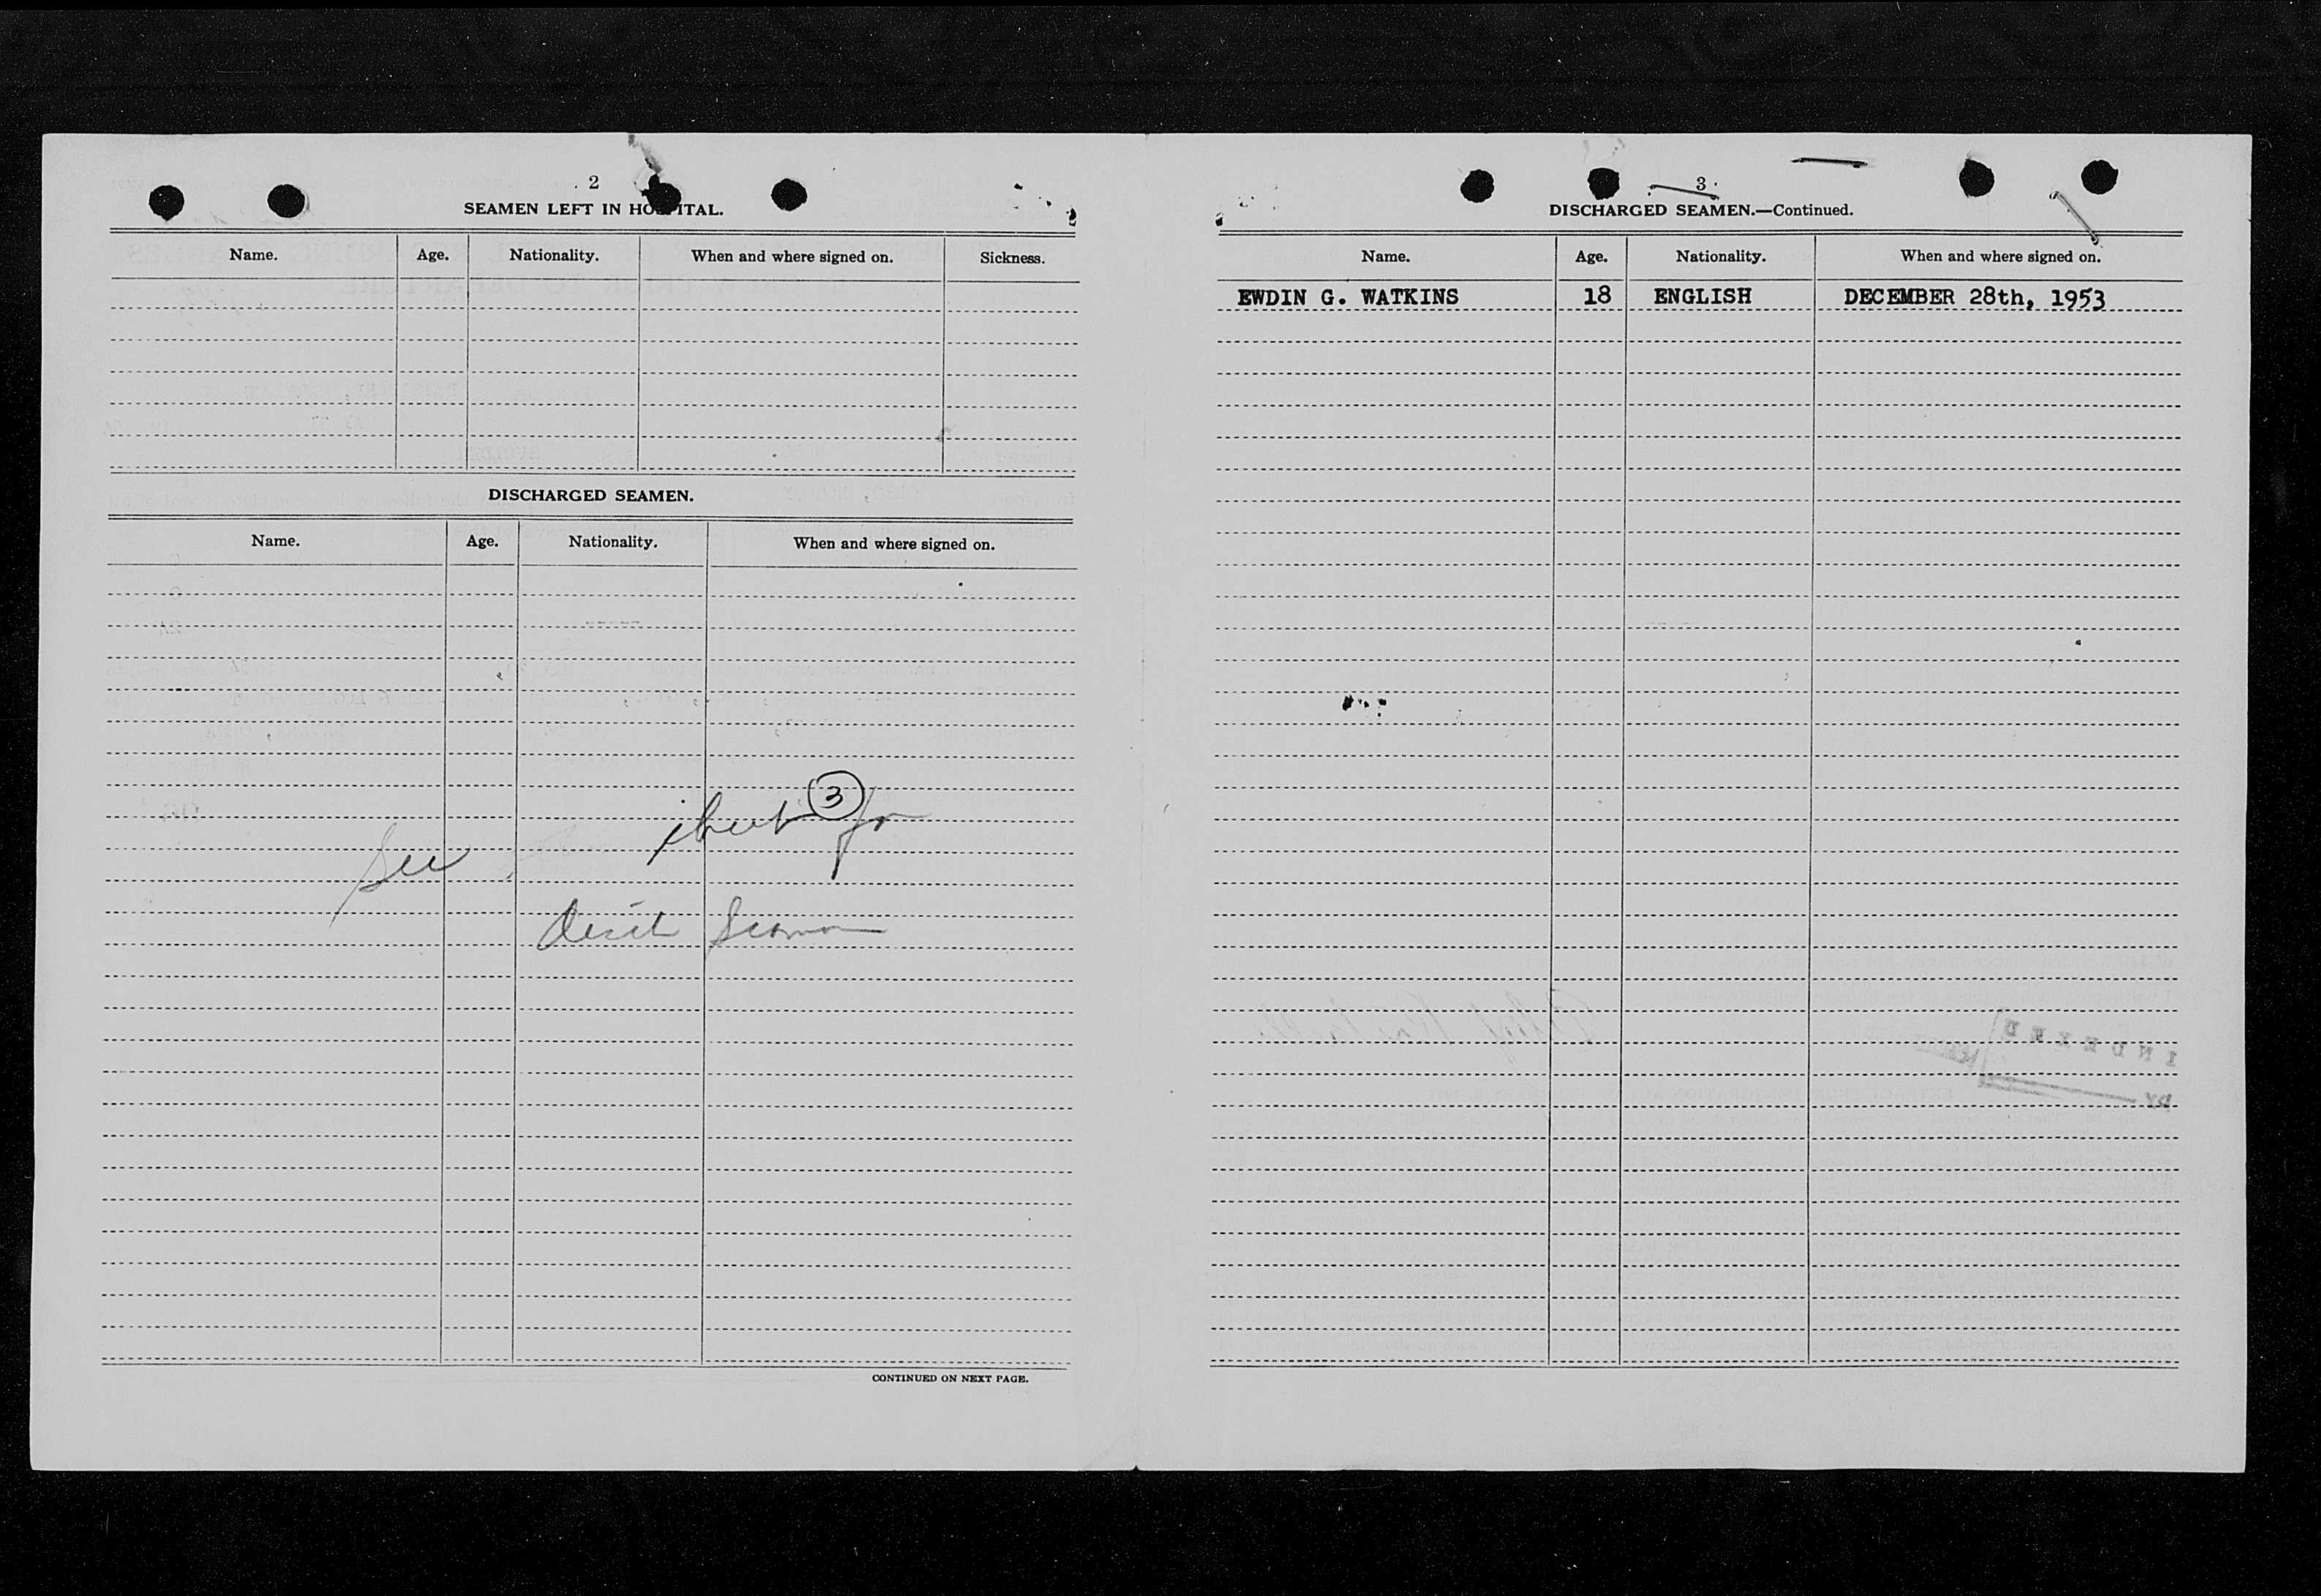 2
SEAMEN LEFT IN HOSPITAL.
Name. Age. Nationality. When and where signed on. Sickness.
DISCHARGED SEAMEN.
Name. Age. Nationality. When and where signed on.
See sheet 3 for
Seaman
CONTINUED ON NEXT PAGE.
3.
DISCHARGED SEAMEN.—Continued.
Name. Age. Nationality. When and where signed on.
EWDIN G. WATKINS 18 ENGLISH DECEMBER 28th, 1953
INDEXED
BY